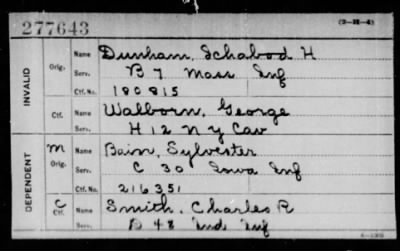 277643
(3-28-4)
INVALID
Orig.
Name Dunham, Ichabod H
Serv. B 7 Mass Inf
Ctf. No. 180815
Ctf.
Name Walborn, George
Serv. H 12 N Y Cav
DEPENDENT
M
Orig.
Name Bain, Sylvester
Serv. C 30 Iowa Inf
Ctf. No. 216351
C
Ctf.
Name Smith, Charles R
Serv. D 48 Ind Inf